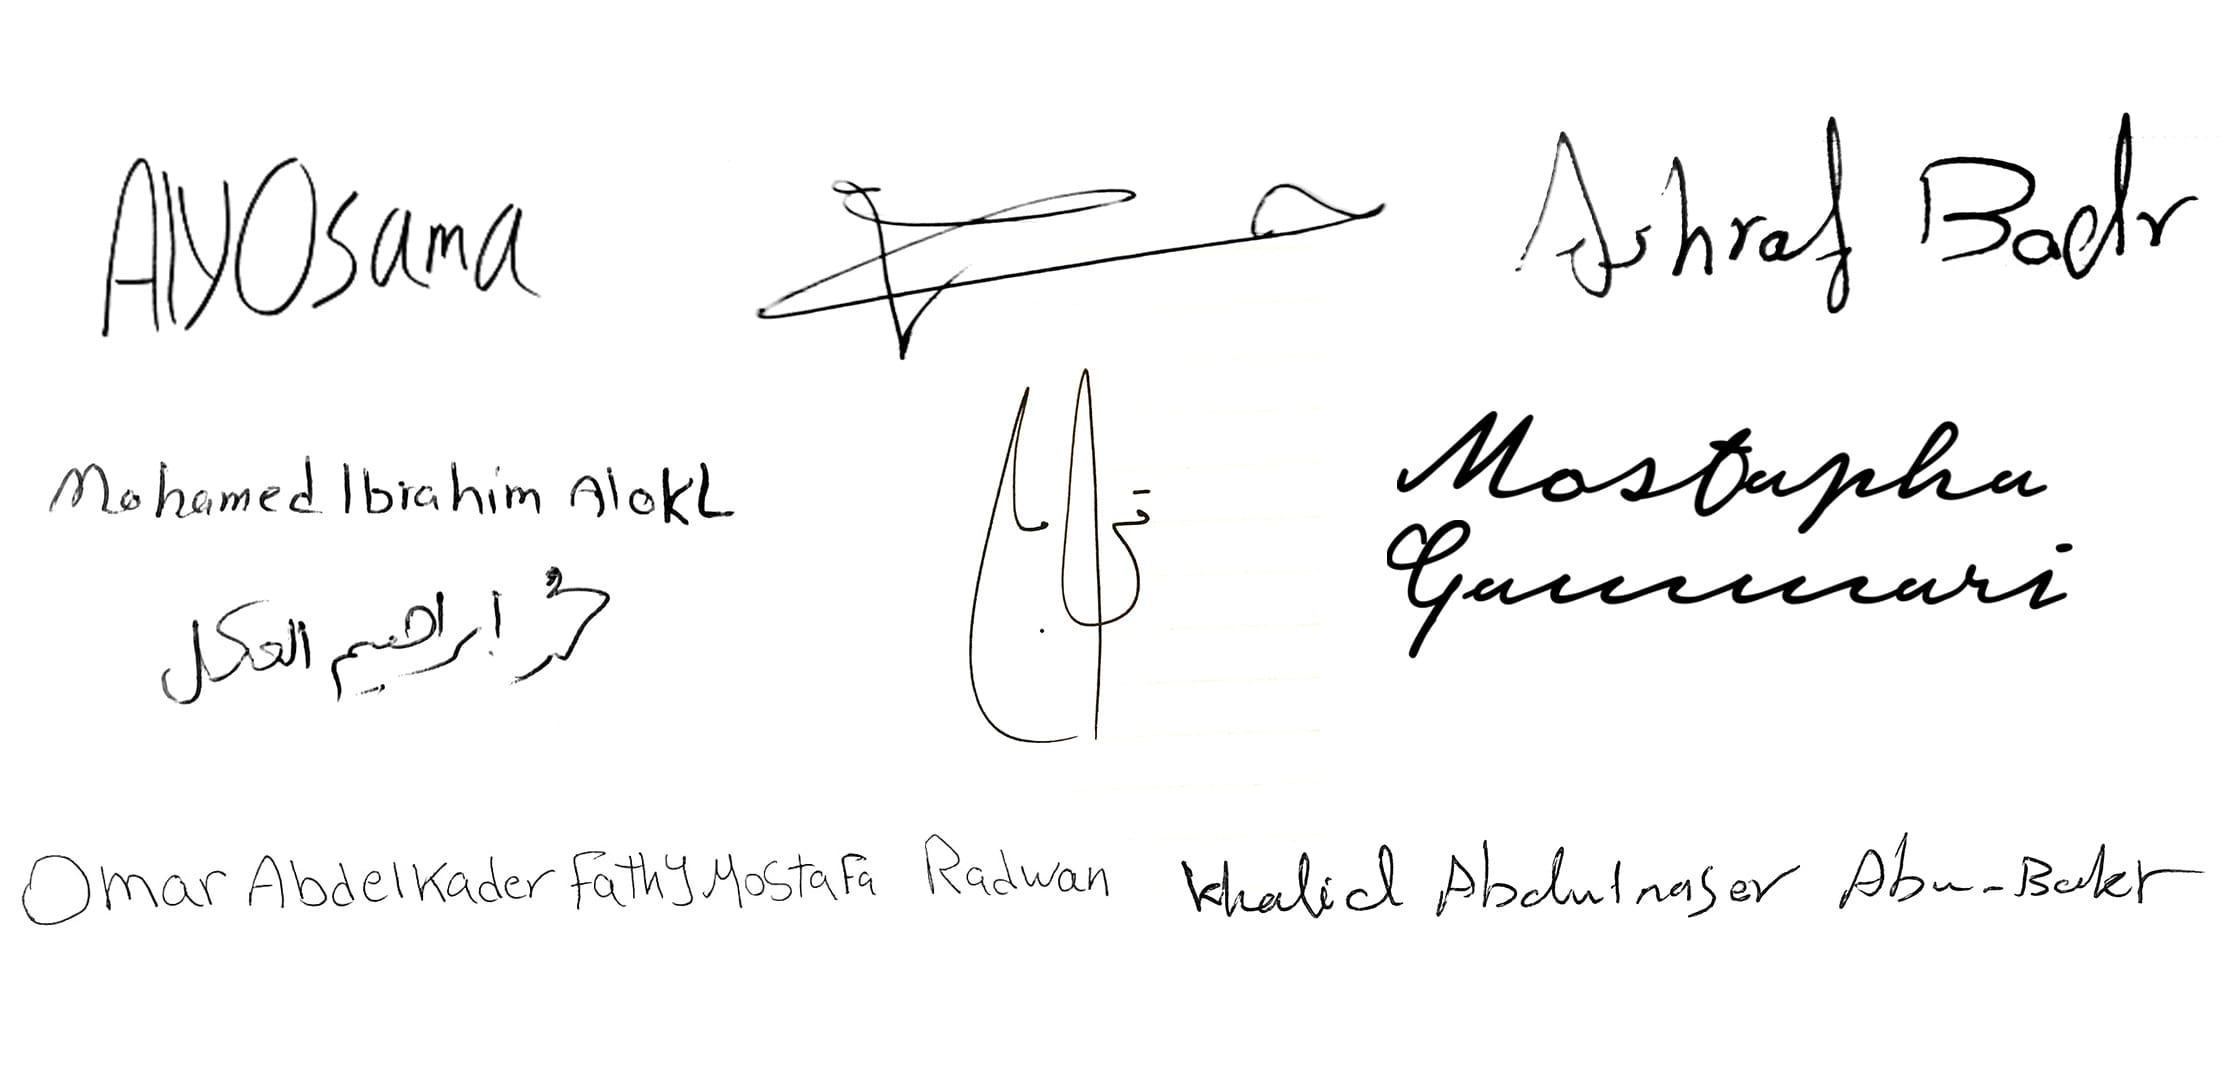 AlyOsama
Ashraf Badr
Mohamed Ibrahim AlokL
محمد ابراهيم العكل
Mostapha
Gammari
Omar Abdelkader Fathy Mostafa Radwan
Khalid Abdulnaser Abu-Bakr